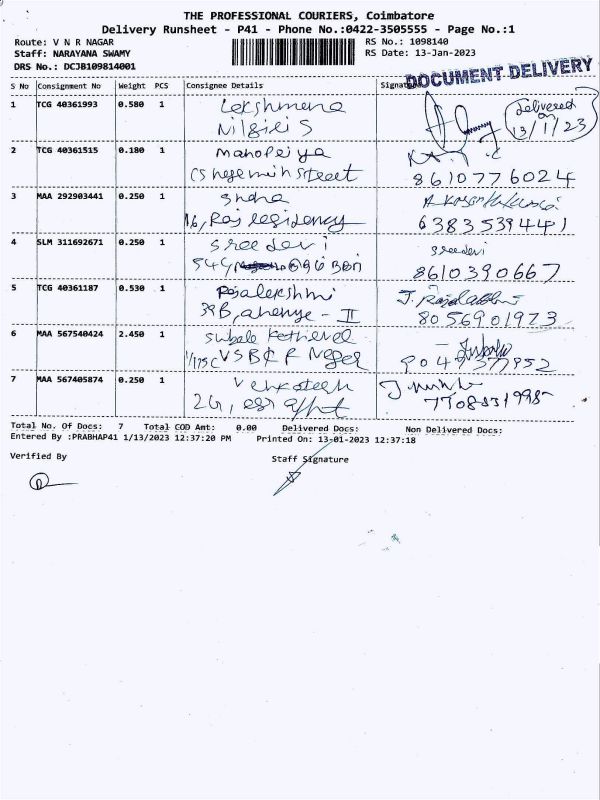 THE PROFESSIONAL COURIERS, Coimbatore
Delivery Runsheet - P41 - Phone No.:0422-3505555 - Page No.:1
Route: V N R NAGAR
RS No.: 1098140
Staff: NARAYANA SWAMY
RS Date: 13-Jan-2023
DRS No.: DCJB109814001
DOCUMENT DELIVERY
S No Consignment No Weight PCS Consignee Details Signature
1 TCG 40361993 0.580 1 Lekshmena
Nilgili S
Delivered
on
13/1/23
2 TCG 40361515 0.180 1 Manopeiya
street
8610776024
3 MAA 292903441 0.250 1 Sndha
16, Raj Legidency
6383539441
4 SLM 311692671 0.250 1 Sree devi
sreedevi
8610390667
5 TCG 40361187 0.530 1 Rajalekshmi
39B, avenye - II
8056901973
6 MAA 567540424 2.450 1
1/175C VSB & R Nager
7 MAA 567405874 0.250 1 Venkatesh
2G, esr
Total No. Of Docs: 7 Total COD Amt: 0.00 Delivered Docs: Non Delivered Docs:
Entered By :PRABHAP41 1/13/2023 12:37:20 PM Printed On: 13-01-2023 12:37:18
Verified By
Staff Signature